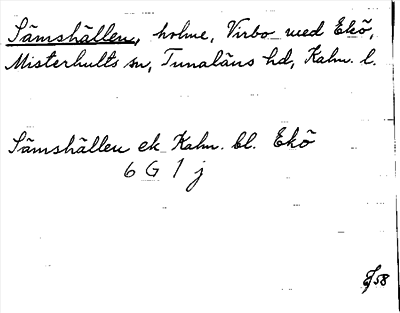 Sämshällen, holme, Virbo med Ekö,
Misterhults sn, Tunaläns hd, Kalm. l.
Sämshällen ek. Kalm. bl. Ekö
6 G 1 j
58